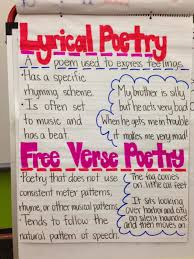 Lyrical Poetry
A poem used to express feelings.
• Has a specific
rhyming scheme.
• Is often set
to music and
has a beat.
My brother is silly
but he acts very bad
When he gets me in trouble
it makes me very mad!
Free Verse Poetry
Poetry that does not use
consistent meter patterns,
rhyme, or other musical patterns
• Tends to follow the
natural pattern of speech.
The fog comes
on little cat feet
It sits looking
over harbor and city
on silent haunches
and then moves on